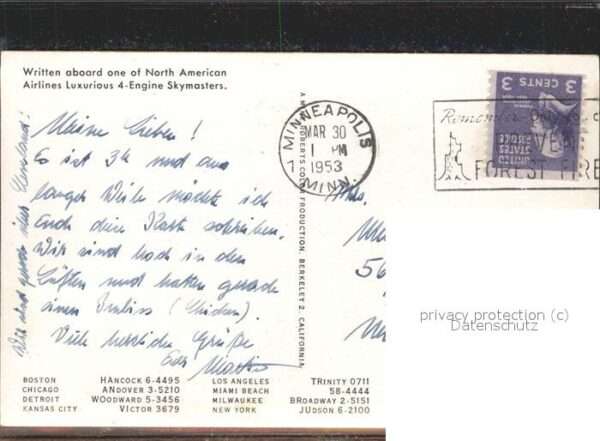 Written aboard one of North American
Airlines Luxurious 4-Engine Skymasters.
Meine Lieben!
Es ist 3h und aus
langer Weile möchte ich
Euch diese Karte schreiben.
Wir sind hoch in den
Lüften und hatten gerade
einen Imbiss (Chicken).
Viele herzliche Grüße
Euer Martin
Wir sind gerade über Cleveland!
MINNEAPOLIS
MAR 30
1 PM
1953
MINN.
1
Remember
FOREST FIRE
3 CENTS 3
UNITED
STATES
POSTAGE
A MIKE ROBERTS COLOR PRODUCTION, BERKELEY 2, CALIFORNIA
Mrs.
56
BOSTON HANCOCK 6-4495 LOS ANGELES TRINITY 0711
CHICAGO ANDOVER 3-5210 MIAMI BEACH 58-4444
DETROIT WOODWARD 5-3456 MILWAUKEE BROADWAY 2-5151
KANSAS CITY VICTOR 3679 NEW YORK JUDSON 6-2100
privacy protection (c)
Datenschutz